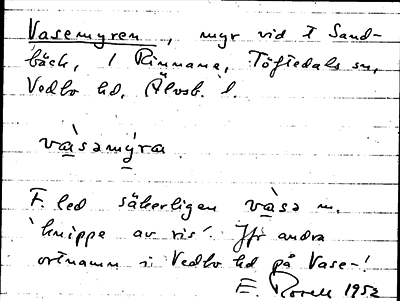 Vasemyren, myr vid t Sand-
bäck, i Rinnane, Töftedals sn,
Vedbo hd, Älvsb. l.
vàsəmy̌ra
F. led säkerligen vàsə m.
'knippe av ris'. Jfr andra
ortnamn i Vedbo hd på Vase-!
E 1952